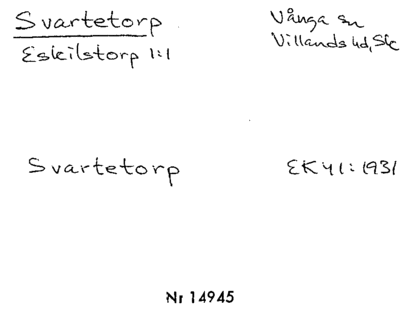 Svartetorp
Vånga sn
Eskilstorp 1:1
Villands hd, Sk
Svartetorp
EK 41:1931
Nr 14945